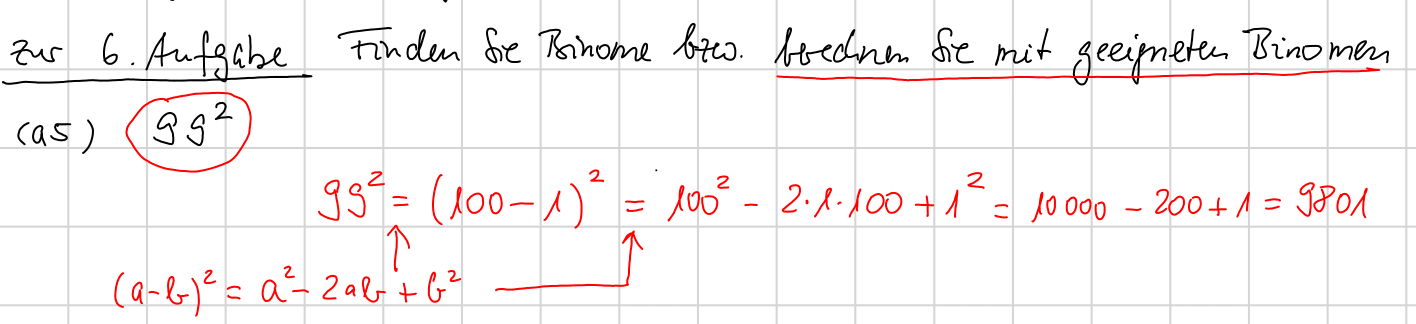 zur 6. Aufgabe Finden Sie Binome bzw. berechnen Sie mit geeigneten Binomen
(a5) 99²
99² = (100 - 1)² = 100² - 2·1·100 + 1² = 10 000 - 200 + 1 = 9801
(a-b)² = a² - 2ab + b²